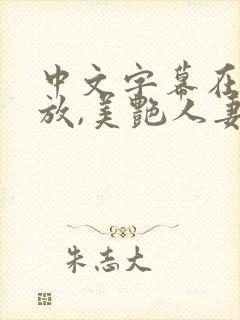 中文字幕在
放,美艷人妻
朱志大